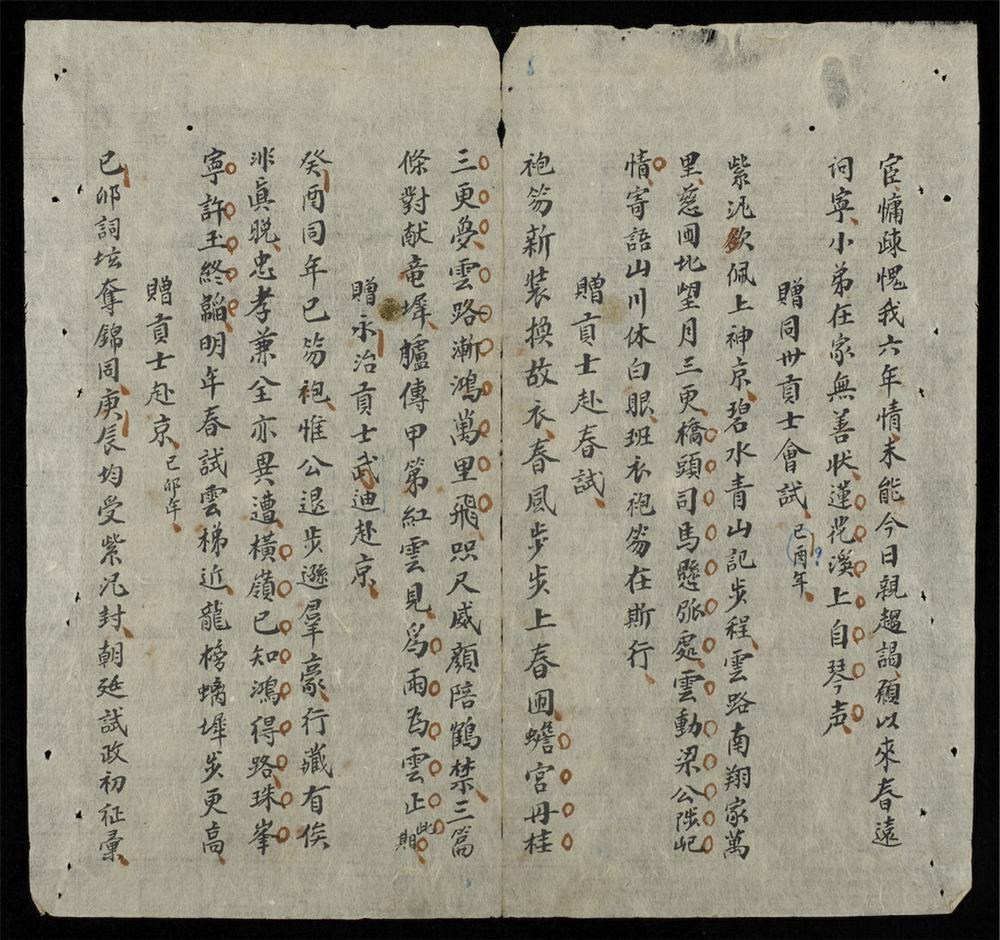 宦慵疎愧我六年情未能今日親趨謁碩以來春遠
詞寧小弟在家無善狀蓮花溪上自琴声
贈同卅貢士會試己酉年
紫泥欲佩上神京碧水青山記步程雲路南翔家萬
里慈囤北望月三更橋頭司馬懸弧處雲動梁公陟屺
情寄語山川休白眼班衣袍笏在斯行
贈貢士赴春試
袍笏新裝換故衣春風步步上春囲蟾宮丹桂
三更夢雲路漸鴻萬里飛咫尺威顏陪鶴禁三篇
條對献竜墀臚傳甲第紅雲見為雨為雲止此期
贈永治貢士武迪赴京
癸酉同年已笏袍惟公退步遜羣豪行藏有俟
非真晚忠孝兼全亦異遭橫嶺已知鴻得路珠峯
寧許玉終韜明年春試雲梯近龍榜螭墀步更高
贈貢士赴京己卯年
已卯詞坛奪錦同庚辰均受紫泥封朝廷試政初征彙